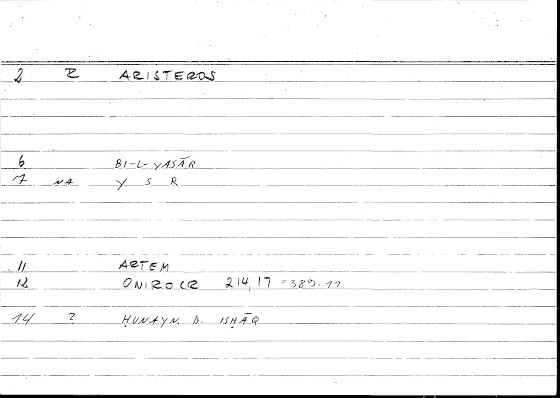 2 R ARISTEROS
6 BI-L-YASĀR
7 NA Y S R
11 ARTEM
12 ONIROCR 214,17 = 389.11
14 ? ḤUNAYN. B. ISḤĀQ